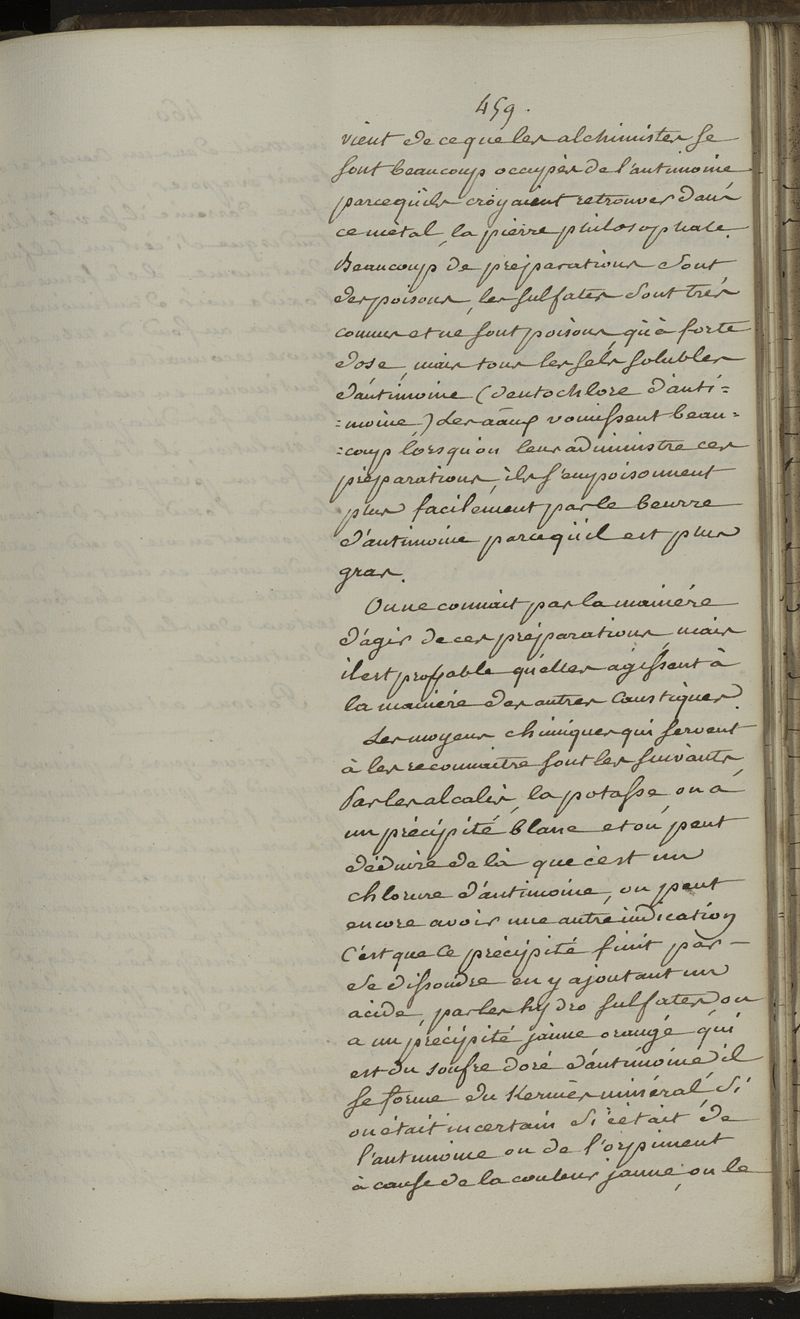 459.
vient de ce que les alchimistes se
sont beaucoup occupés de l'antimoine
parcequ'ils croyaient retrouver dans
ce métal la pierre philosophale.
Beaucoup de préparations sont
des poisons, les sulfates sont très
connus et ne sont poisons qu'à forte
dose, mais tous les sels solubles
d'antimoine (deutochlore d'anti=
=moine) Les vomissent beau=
=coup lorsqu'on leur administre ces
préparations, ils s'empoisonnent
plus facilement par le beurre
d'antimoine parcequ'il est plus
gras.
On ne connait pas la manière
d'agir de ces préparations, mais
il est probable qu'elles agissent à
la manière des autres Caustiques.
Les moyens chimiques qui servent
à les reconnaitre sont les suivants
Par les alcalis, la potasse, on a
un précipité blanc et on peut
déduire de là que c'est un
chlorure d'antimoine, on peut
encore avoir une autre indication
C'est que ce précipité finit par —
se dissoudre en y ajoutant un
acide, par les hydro sulfates on
a un précipité jaune orangé qui
est du soufre doré d'antimoine il
se forme du Kermès minéral, Si
on était incertain si c'était de
l'antimoine ou de l'orpiment
à cause de la couleur jaune, on le